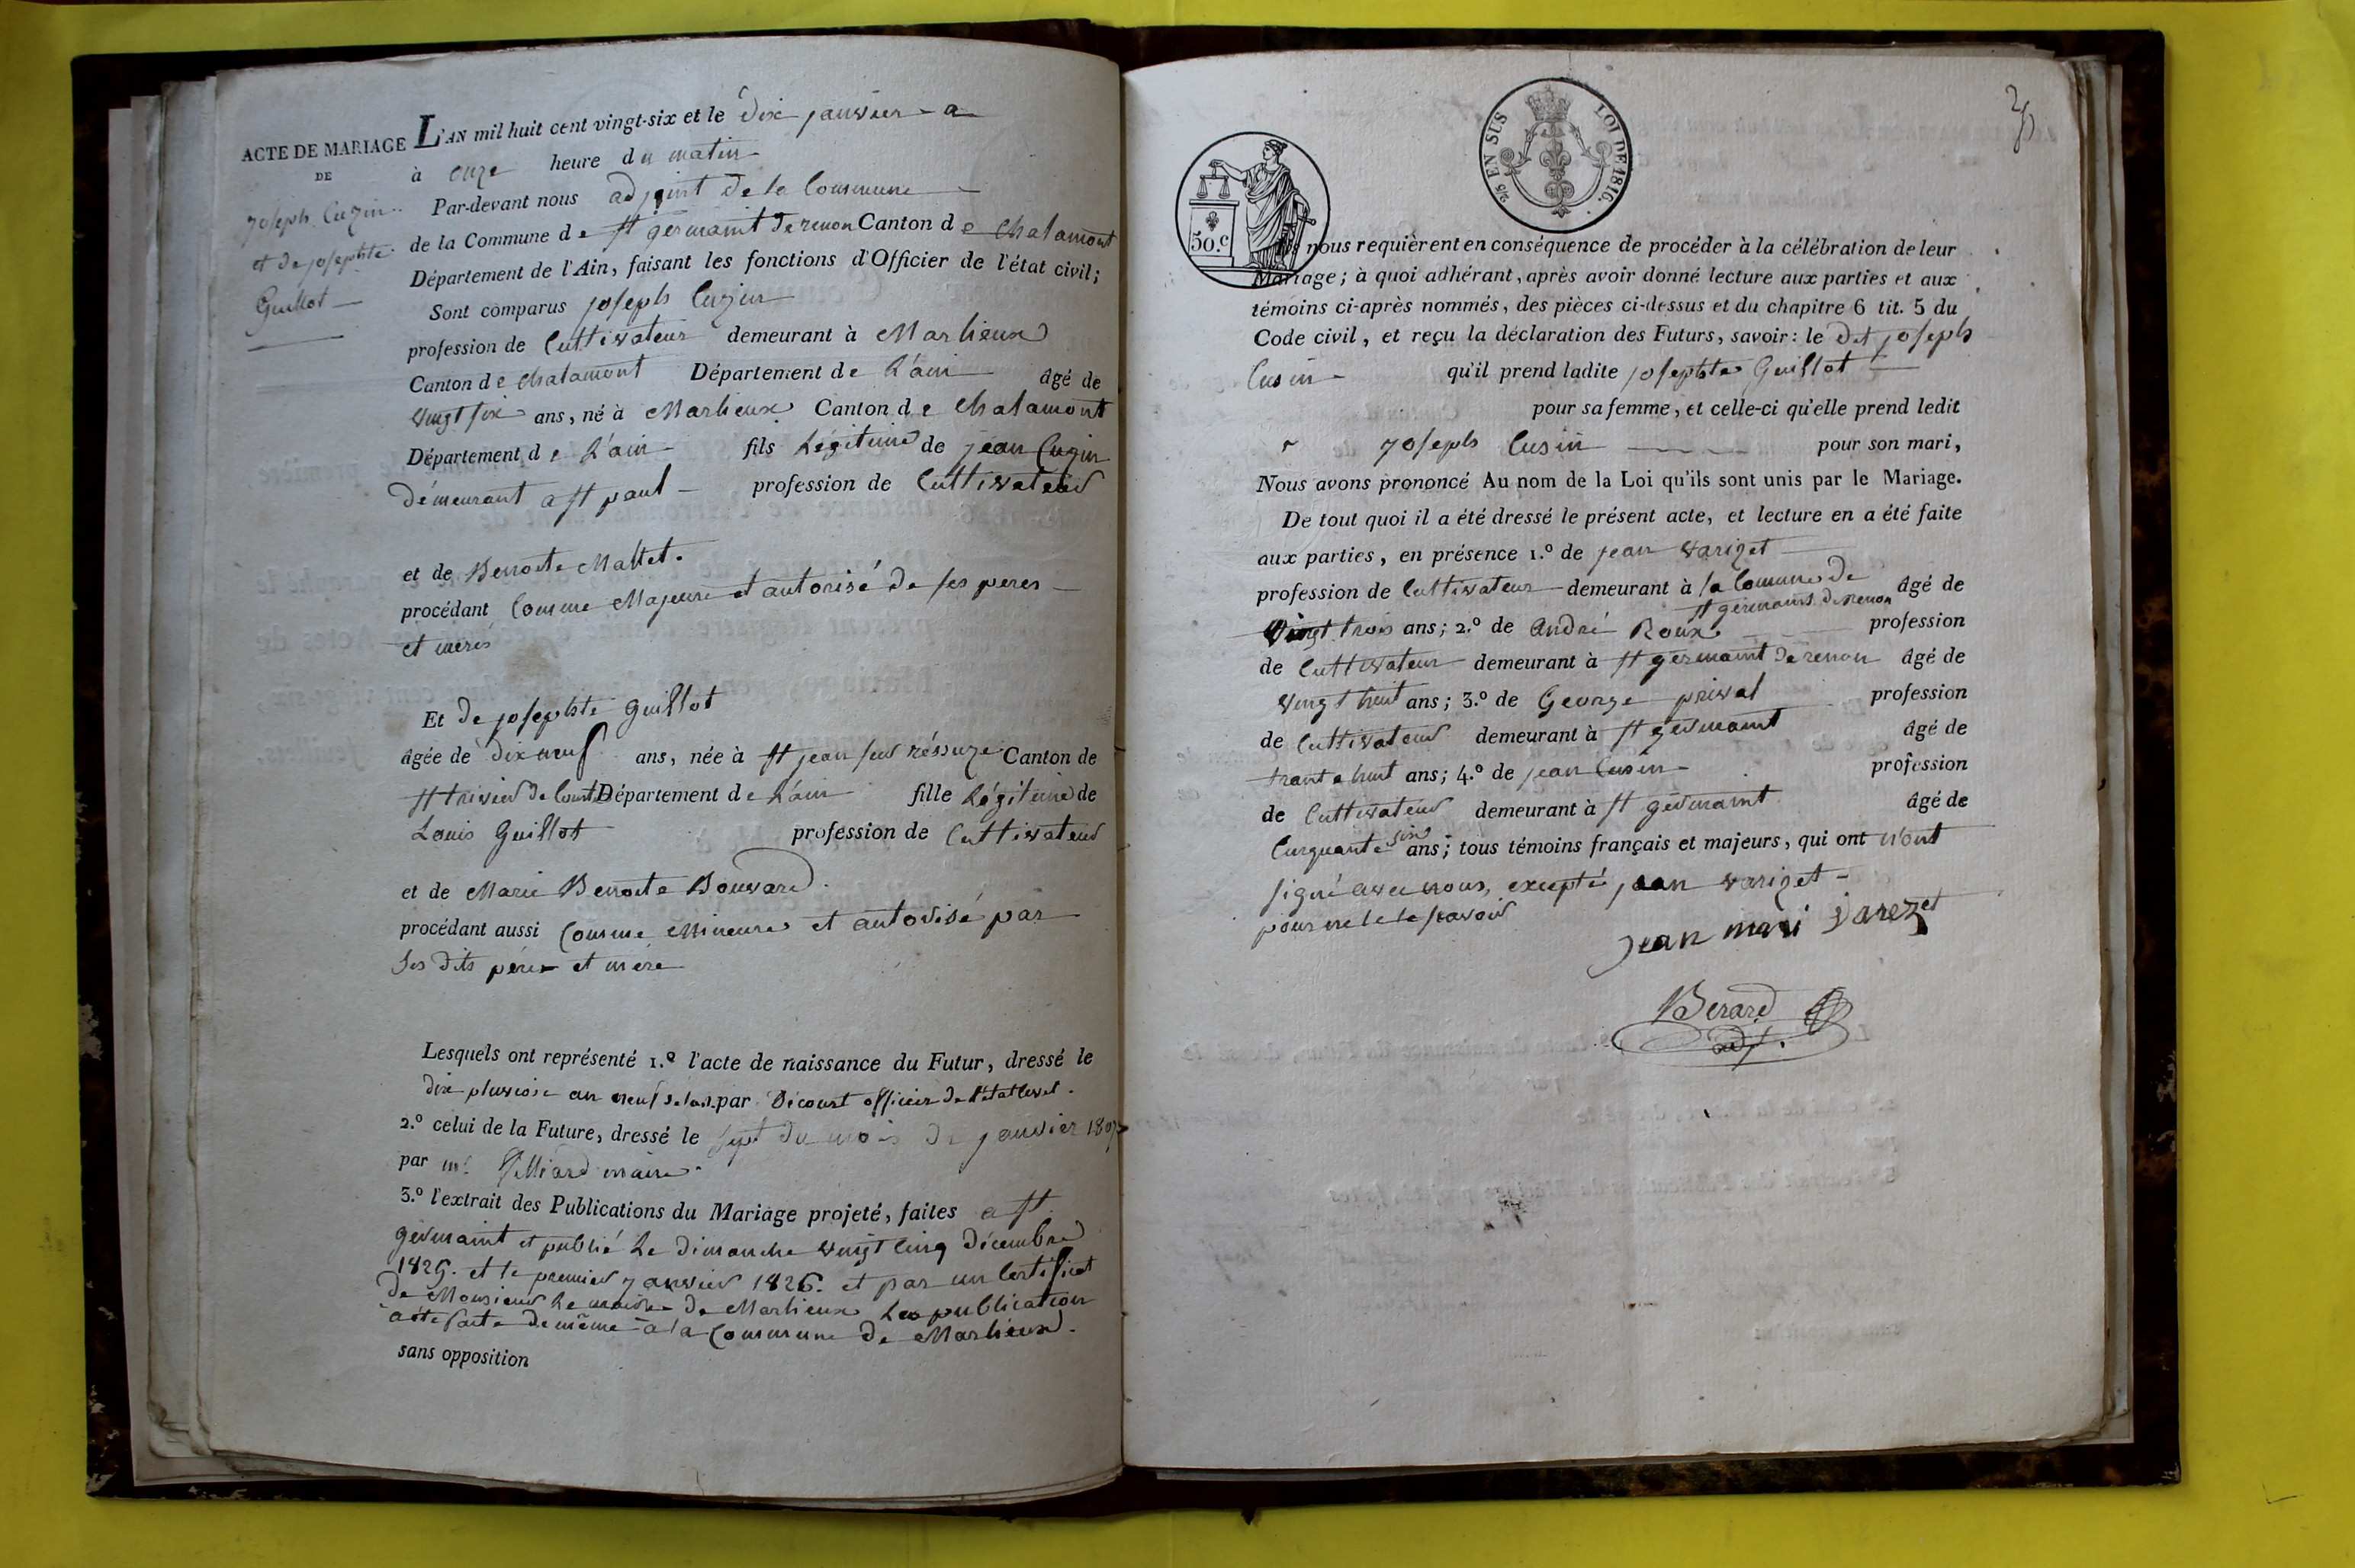 ACTE DE MARIAGE
DE
joseph Cuzin
et de josephte
Guillot
L'AN mil huit cent vingt-six et le dix janvier a
à onze heure du matin
Par-devant nous adjoint de la Commune
de la Commune de st germaint de renon Canton de Chalamont
Département de l'Ain, faisant les fonctions d'Officier de l'état civil;
Sont comparus joseph Cuzin
profession de Cultivateur demeurant à Marlieux
Canton de Chalamont Département de L'ain âgé de
vingt six ans, né à Marlieux Canton de Chalamont
Département de L'ain fils Légitime de jean Cuzin
démeurant a st paul profession de Cultivateur
et de Benoite Mallet.
procédant Comme Majeure et autorisé de ses peres
et meres
Et de josephte Guillot
âgée de dix neuf ans, née à st jean sur réssuze Canton de
st trivier de Court Département de L'ain fille Légitime de
Louis Guillot profession de Cultivateur
et de Marie Benoite Bouvard.
procédant aussi Comme Mineure et autorisé par
Ses dits père et mère
Lesquels ont représenté 1.º l'acte de naissance du Futur, dressé le
dix pluviose an neuf par Dicourt officier de l'état Civil.
2.º celui de la Future, dressé le sept du mois de janvier 1807
par mr maire
3.º l'extrait des Publications du Mariage projeté, faites a st
germaint et publié Le dimanche vingt cinq décembre
1825. et le premier janvier 1826. et par un Certificat
de Monsieur Le maire de Marlieux La publication
a été faite de même a la Commune de Marlieux.
sans opposition
50.c
25 EN SUS LOI DE 1816.
3
nous requièrent en conséquence de procéder à la célébration de leur
Mariage; à quoi adhérant, après avoir donné lecture aux parties et aux
témoins ci-après nommés, des pièces ci-dessus et du chapitre 6 tit. 5 du
Code civil, et reçu la déclaration des Futurs, savoir: le dit joseph
Cusin qu'il prend ladite josephte Guillot
pour sa femme, et celle-ci qu'elle prend ledit
joseph Cusin pour son mari,
Nous avons prononcé Au nom de la Loi qu'ils sont unis par le Mariage.
De tout quoi il a été dressé le présent acte, et lecture en a été faite
aux parties, en présence 1.º de jean varizet
profession de Cultivateur demeurant à la Comune de
st germaint de renon âgé de
vingt trois ans; 2.º de andré Roux profession
de Cultivateur demeurant à st germaint de renon âgé de
vingt huit ans; 3.º de George privat profession
de Cultivateur demeurant à st germaint âgé de
trante huit ans; 4.º de jean Cusin profession
de Cultivateur demeurant à st germaint âgé de
Cinquante six ans; tous témoins français et majeurs, qui ont n'ont
signé avec nous, excepté jean varizet
pour ne le savoir
jean mari varezet
Berard
adj.